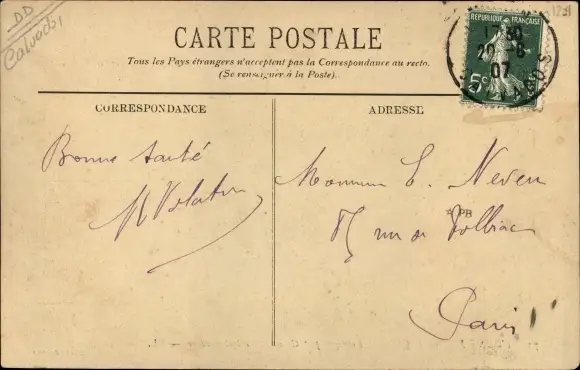 DD
Calvados
1291
CARTE POSTALE
Tous les Pays étrangers n'acceptent pas la Correspondance au recto.
(Se renseigner à la Poste).
RÉPUBLIQUE FRANÇAISE
5c
20-8
07
CORRESPONDANCE
ADRESSE
Bonne santé
Monsieur E. Neveu
rue de Tolbiac
*PB
Paris